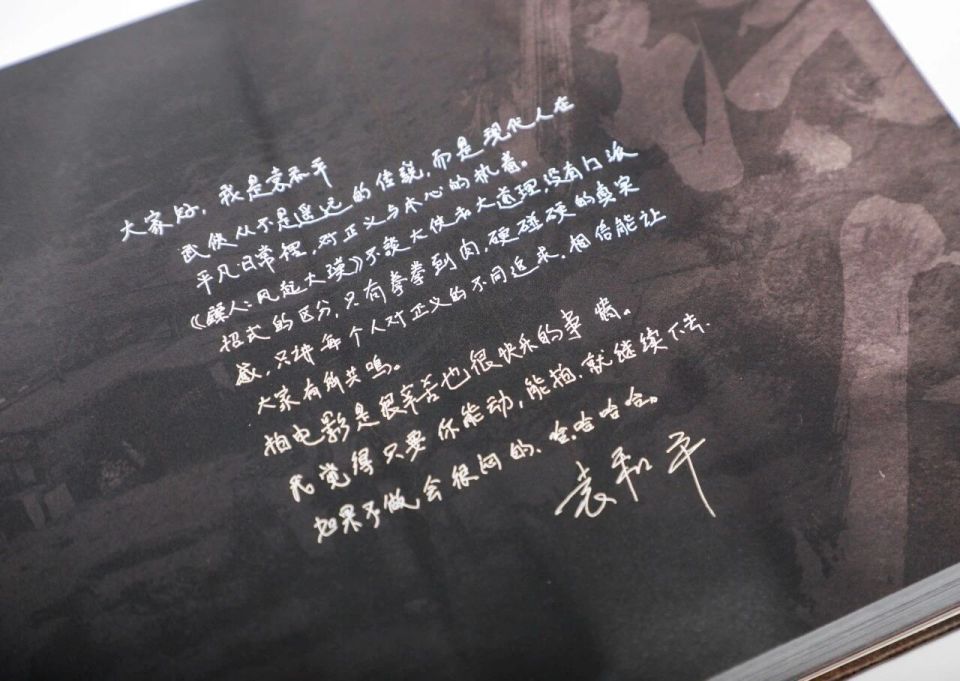 大家好，我是袁和平
武侠从不是遥远的传说，而是现代人在
平凡日常裡，对正义与本心的执着。
《镖人：风起大漠》不谈大侠和大道理，没有门派
招式的区分，只有拳拳到肉，硬碰硬的真实
感，只讲每个人对正义的不同追求，相信能让
大家有所共鸣。
拍电影是很辛苦也很快乐的事情。
我觉得只要你能动，能拍，就继续下去，
如果不做会很闷的，哈哈哈哈。
袁和平